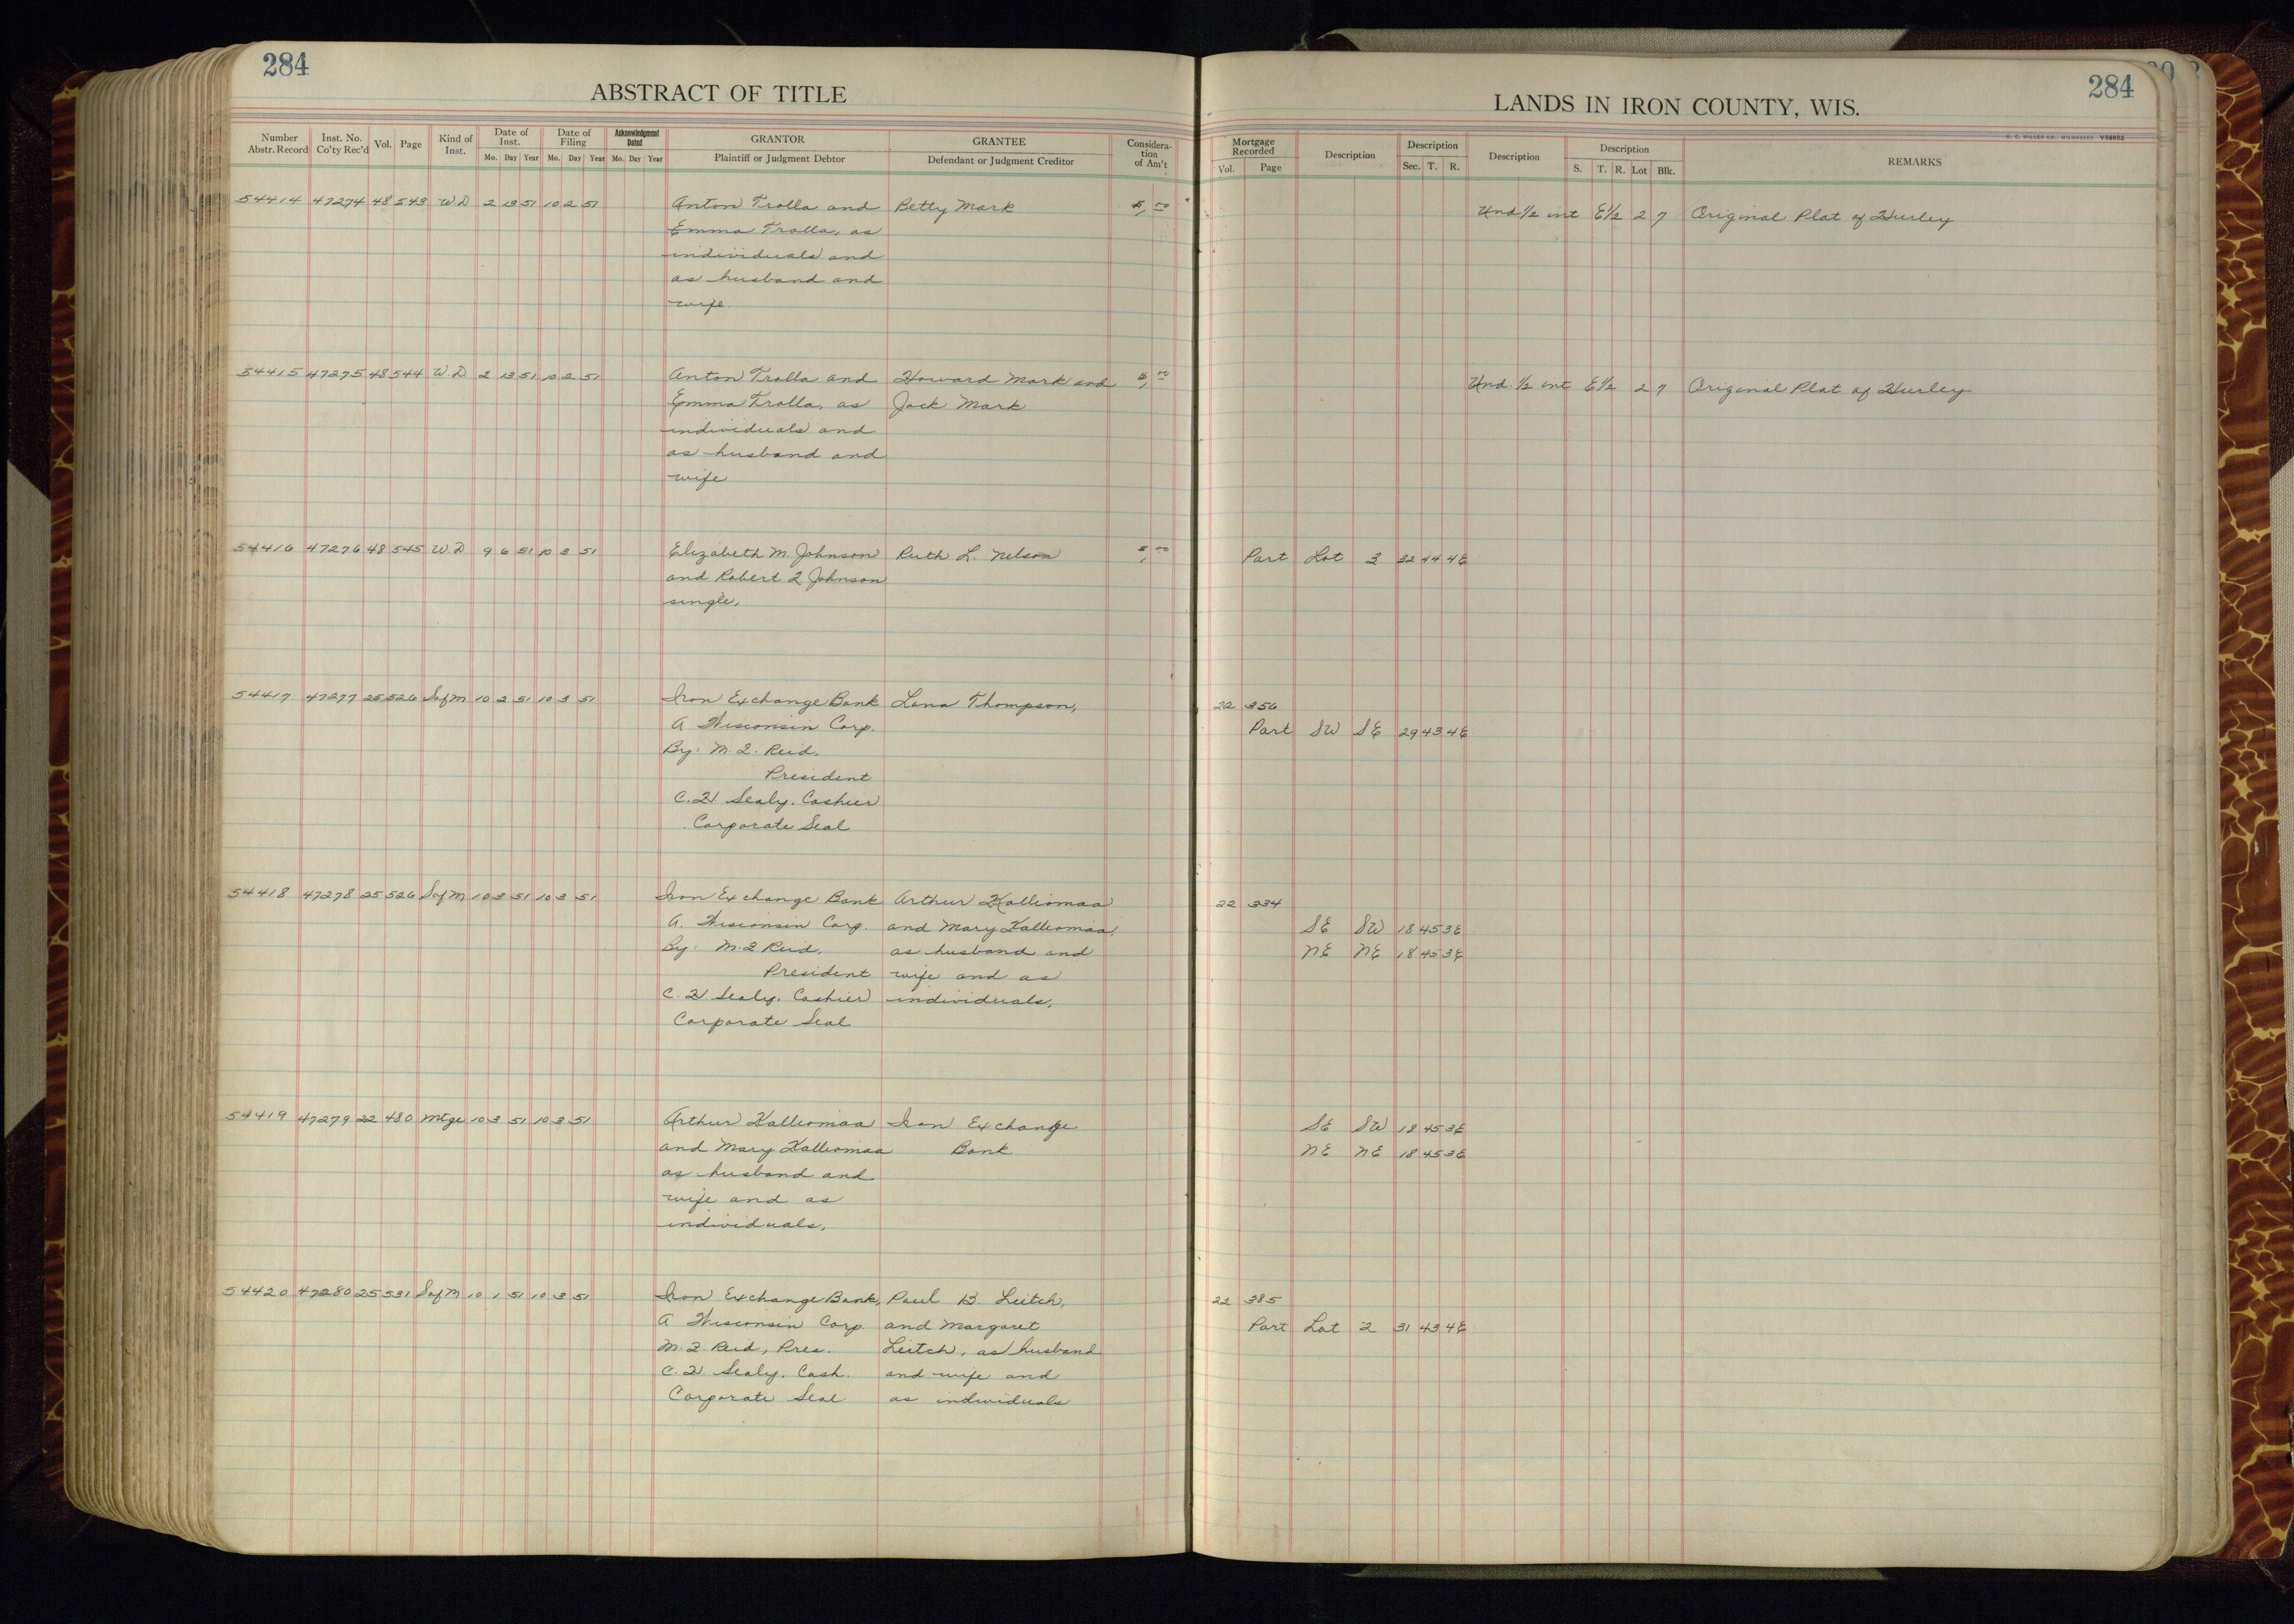 284
ABSTRACT OF TITLE
Number Abstr. Record Inst. No. Co'ty Rec'd Vol. Page Kind of Inst. Date of Inst. Mo. Day Year Date of Filing Mo. Day Year Acknowledgment Dated Mo. Day Year GRANTOR Plaintiff or Judgment Debtor GRANTEE Defendant or Judgment Creditor Considera- tion of Am't
284
LANDS IN IRON COUNTY, WIS.
H. C. MILLER CO., MILWAUKEE V56882
Mortgage Recorded Vol. Page Description Description Sec. T. R. Description Description S. T. R. Lot Blk. REMARKS
54414 47274 48 543 W D 2 13 51 10 2 51 Anton Trolla and Betty Mark Und 1/2 int E 1/2 2 7 Original Plat of Hurley
Emma Trolla, as
individuals and
as husband and
wife
54415 47275 48 544 W. D 2 13 51 10 2 51 Anton Trolla and Howard Mark and Und. 1/2 int E 1/2 2 7 Original Plat of Hurley
Emma Trolla, as Jack Mark
individuals and
as husband and
wife
54416 47276 48 545 W. D 9 6 51 10 3 51 Elizabeth M. Johnson Ruth L. Nelson Part Lot 3 32 44 4E
and Robert J Johnson
single,
54417 47277 25 526 Sof M 10 2 51 10 3 51 Iron Exchange Bank Lena Thompson, 22 356
A Wisconsin Corp. Part SW SE 29 43 4E
By: M. J. Reid.
President
C. H Sealy. Cashier
Corporate Seal
54418 47278 25 526 Sof M 10 3 51 10 3 51 Iron Exchange Bank Arthur Kalliomaa 22 334
A. Wisconsin Corp. and Mary Kalliomaa SE SW 18 45 3E
By: M. J Reid. as husband and NE NE 18 45 3E
President wife and as
C. H. Sealy. Cashier individuals,
Corporate Seal
54419 47279 22 480 Mtge 10 3 51 10 3 51 Arthur Kalliomaa Iron Exchange SE SW 18 45 3E
and Mary Kalliomaa Bank NE NE 18 45 3E
as husband and
wife and as
individuals,
54420 47280 25 531 Sof M 10 1 51 10 3 51 Iron Exchange Bank, Paul B. Leitch, 22 385
A Wisconsin Corp. and Margaret Part Lot 2 31 43 4E
M. J. Reid, Pres. Leitch, as husband
C. H. Sealy. Cash. and wife and
Corporate Seal as individuals